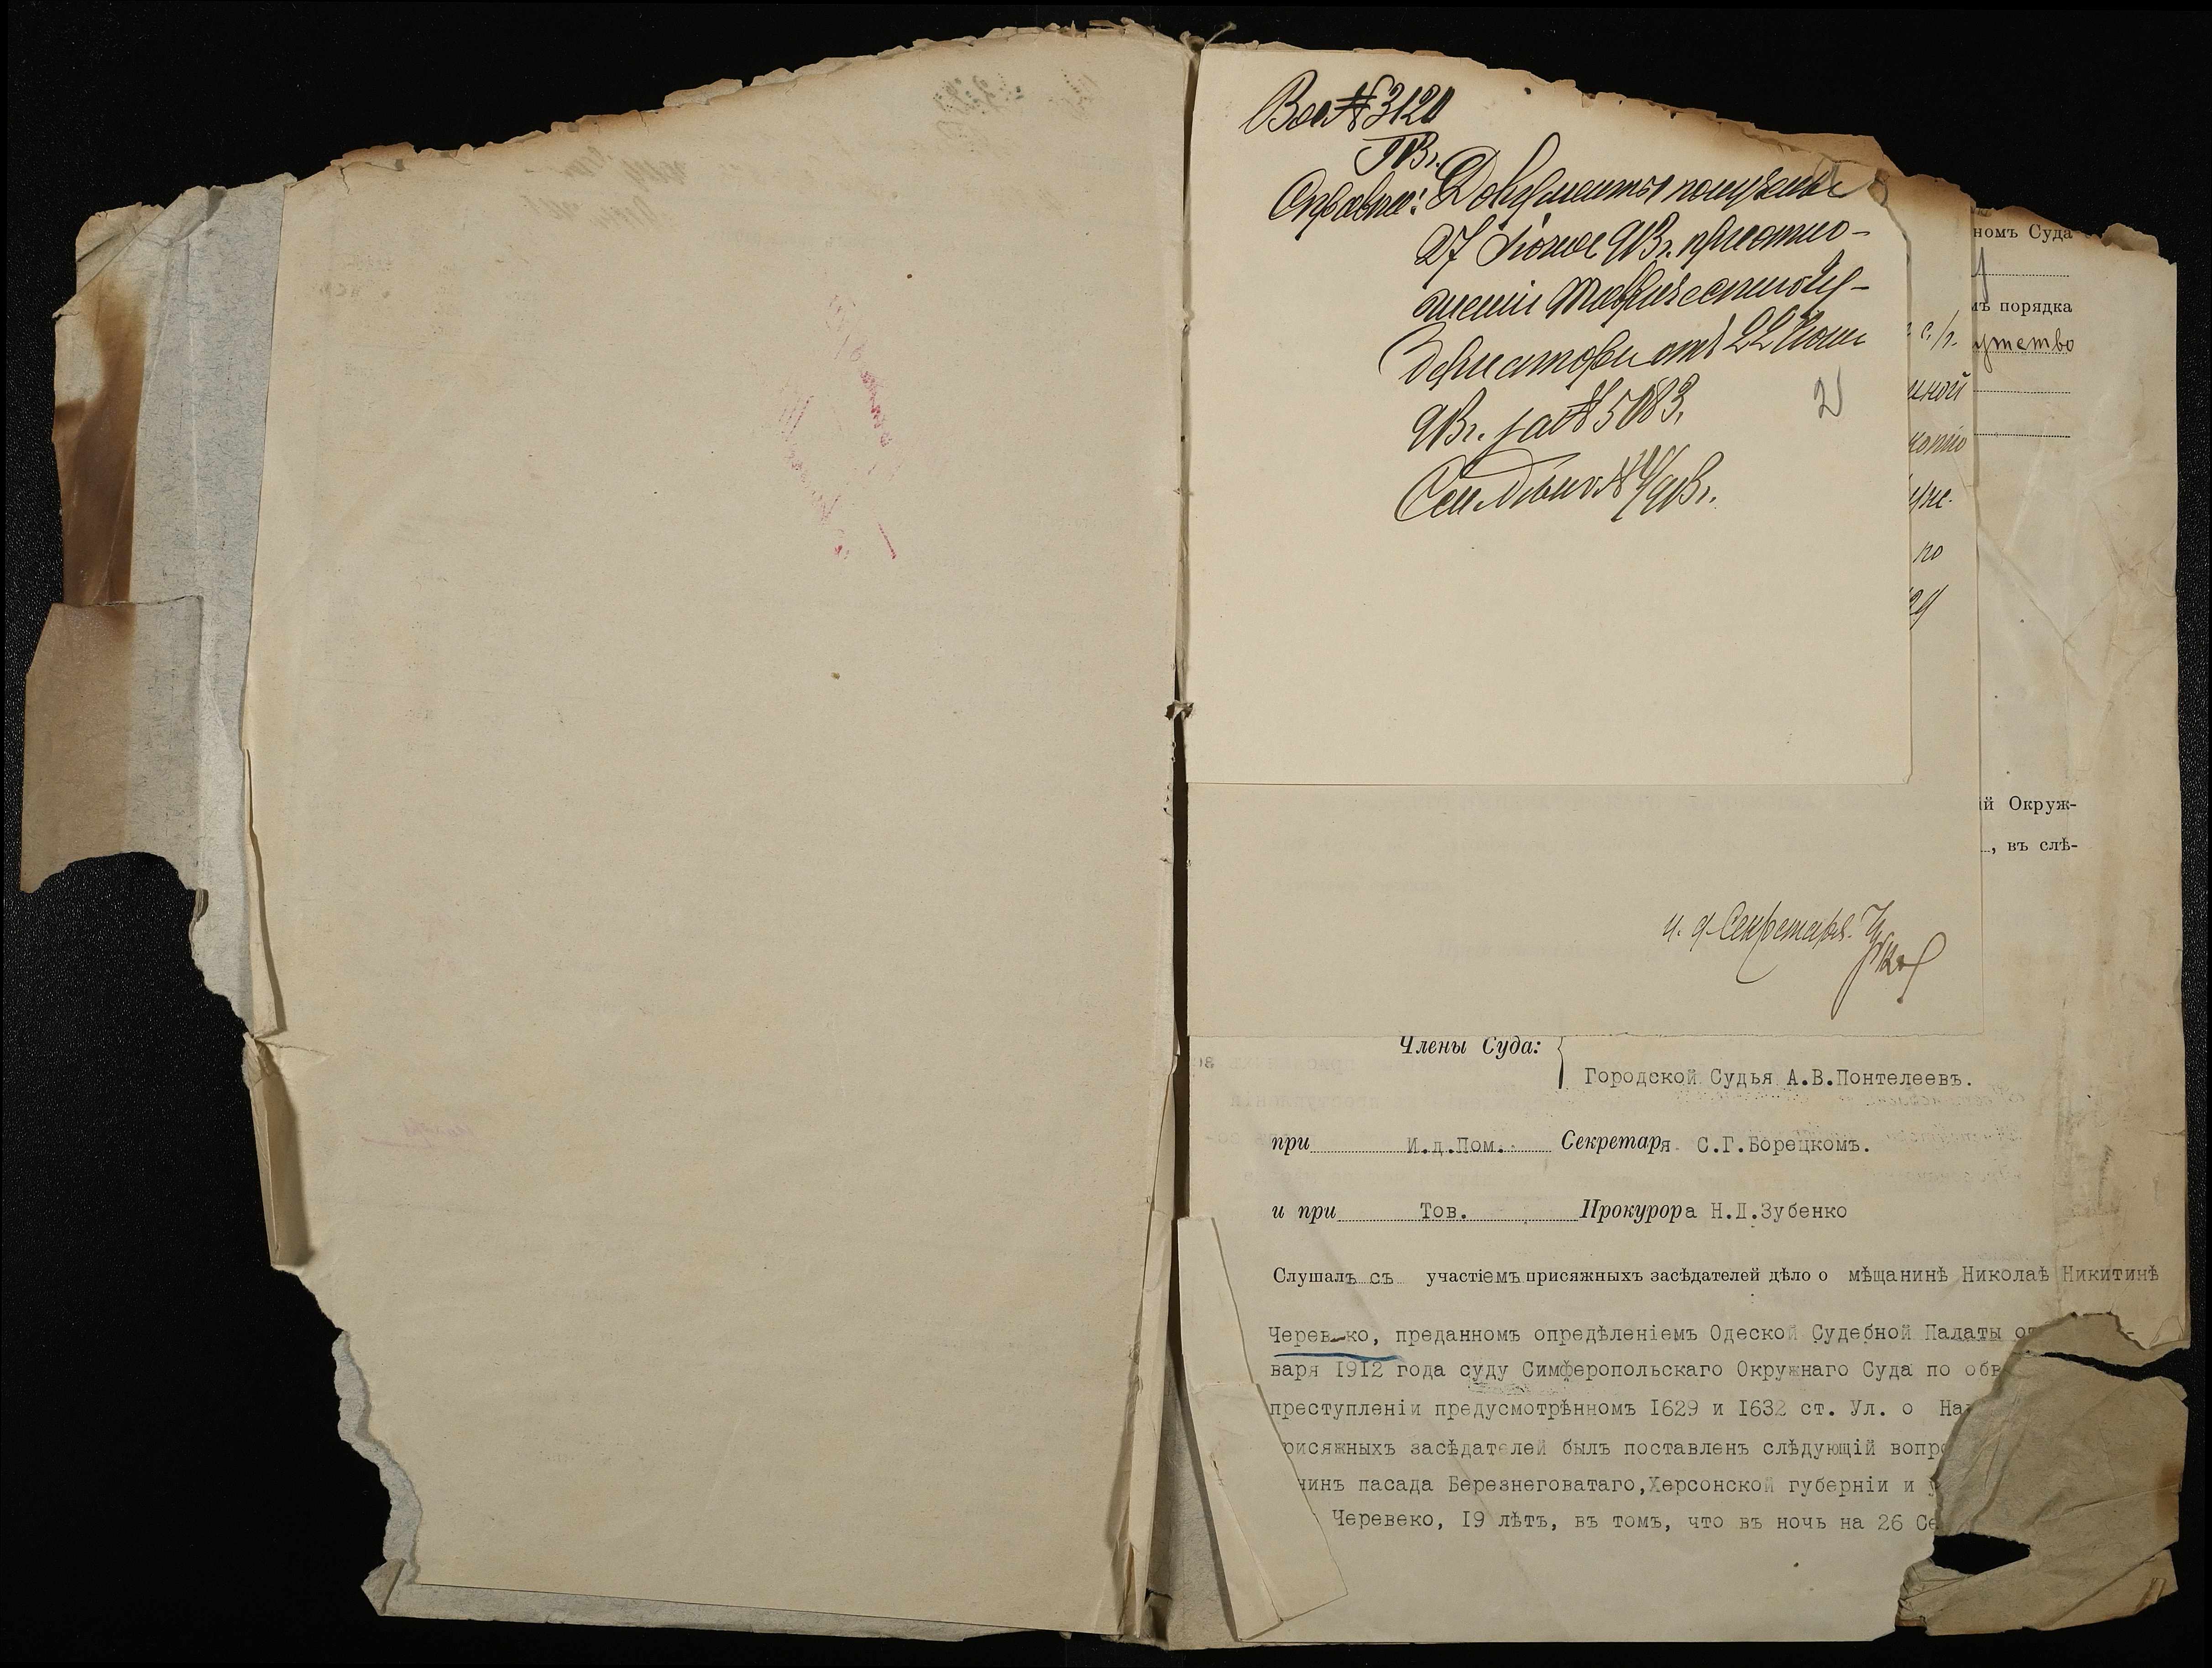 Вх. № 3120
913 г.
Справка: Документы получены
27 Іюня 913 г. при отно-
шеніи Таврическаго Гу-
бернатора отъ 22 Іюня
913 г. за № 5083.
913 г.
2
номъ Суда
мъ порядка
с/г.
ущество
копію
по
ій Окруж-
, въ слѣ-
и. д. Секретаря.
Члены Суда:
Городской Судья А.В.Понтелеевъ.
при И.д.Пом. Секретаря С.Г.Борецкомъ.
и при Тов. Прокурора Н.Д.Зубенко
Слушалъ съ участіемъ присяжныхъ засѣдателей дѣло о мѣщанинѣ Николаѣ Никитинѣ
Черевеко, преданномъ опредѣленіемъ Одеской Судебной Палаты от
варя 1912 года суду Симферопольскаго Окружнаго Суда по обв
преступленіи предусмотрѣнномъ 1629 и 1632 ст. Ул. о На
рисяжныхъ засѣдателей былъ поставленъ слѣдующій вопро
нинъ пасада Березнеговатаго,Херсонской губерніи и у
Черевеко, 19 лѣтъ, въ томъ, что въ ночь на 26 Се